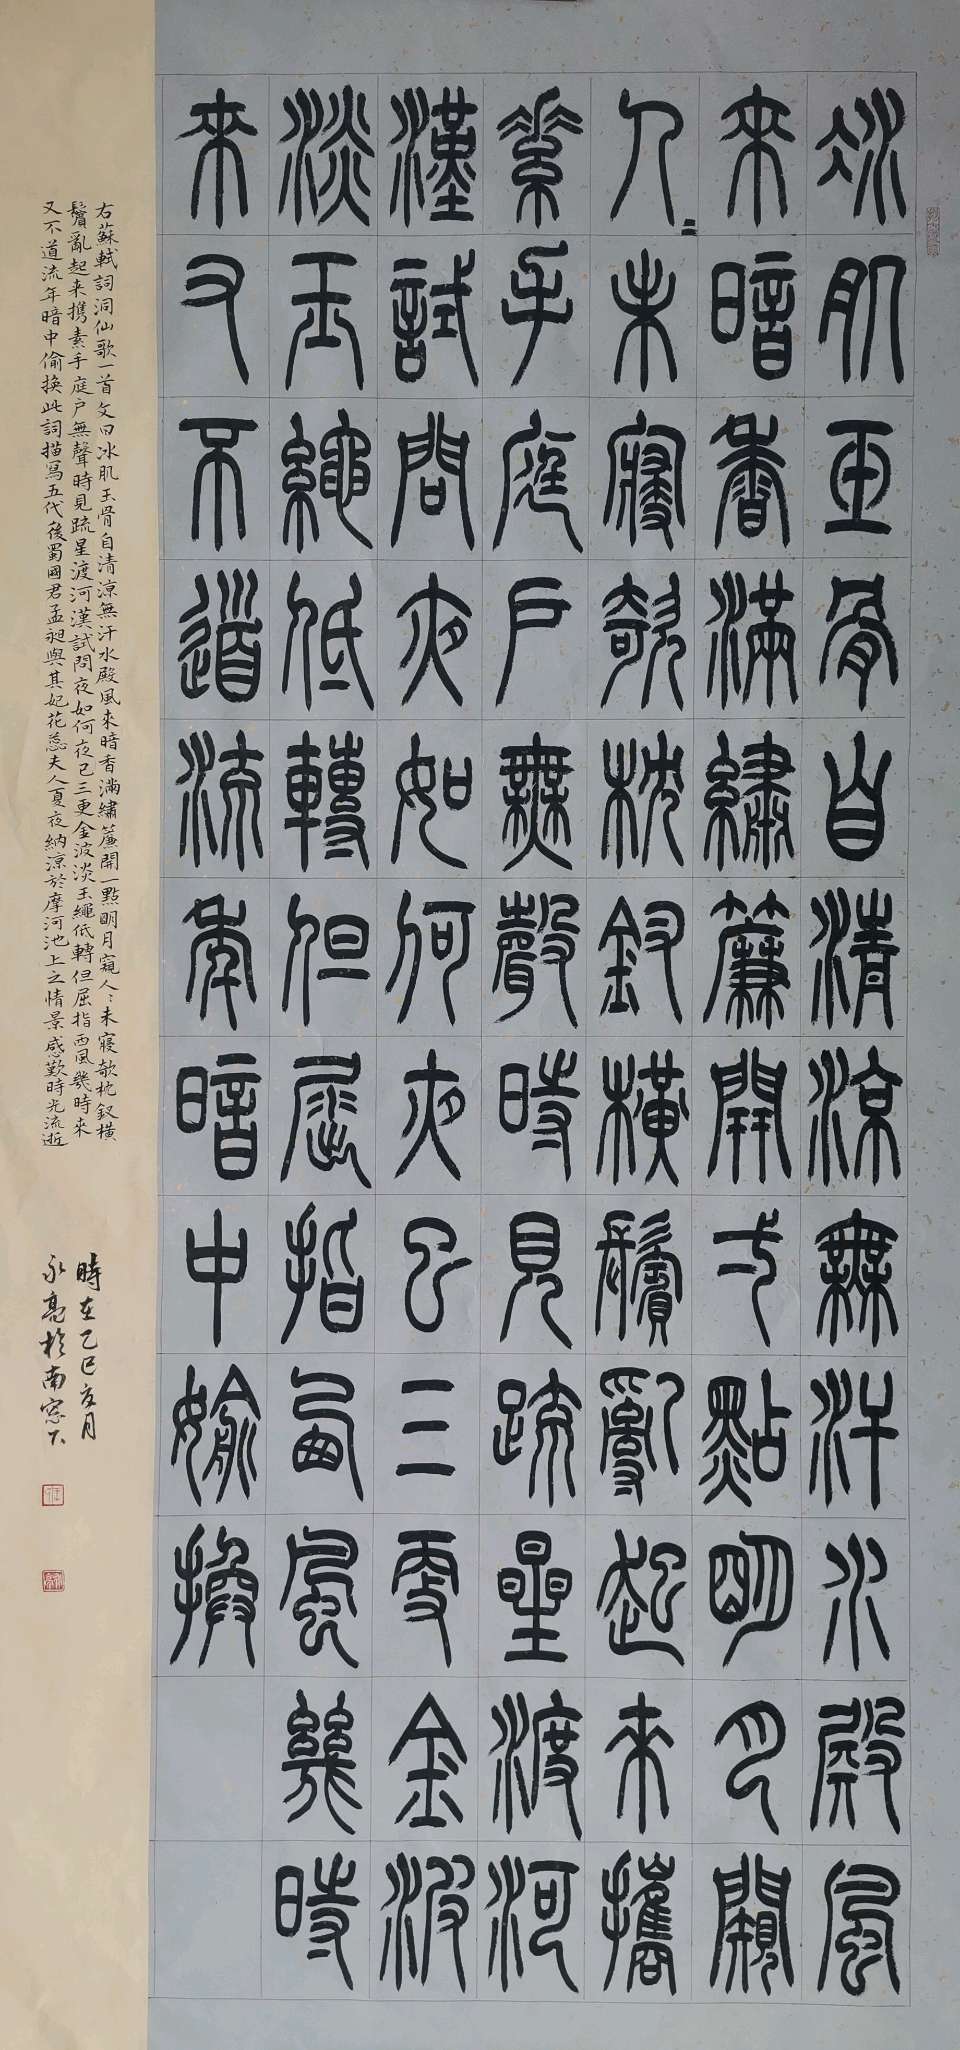 冰肌玉骨自清涼無汗水殿風
來暗香滿繡簾開弌點明月闚
人〻未寢欹枕釵橫鬢亂起來攜
素手庭戶無聲時見疏星渡河
漢試問夜如何夜已三更金波
淡玉繩低轉但屈指西風幾時
來又不道流年暗中媮換
右蘇軾詞洞仙歌一首文曰冰肌玉骨自清涼無汗水殿風來暗香滿繡簾開一點明月窺人〻未寢欹枕釵橫
鬢亂起来携素手庭户無聲時見疏星渡河漢試問夜如何夜已三更金波淡玉繩低轉但屈指西風幾時來
又不道流年暗中偷换此詞描寫五代後蜀國君孟昶與其妃花蕊夫人夏夜納涼於摩河池上之情景感歎時光流逝
時在乙巳夏月
永亮於南窓下